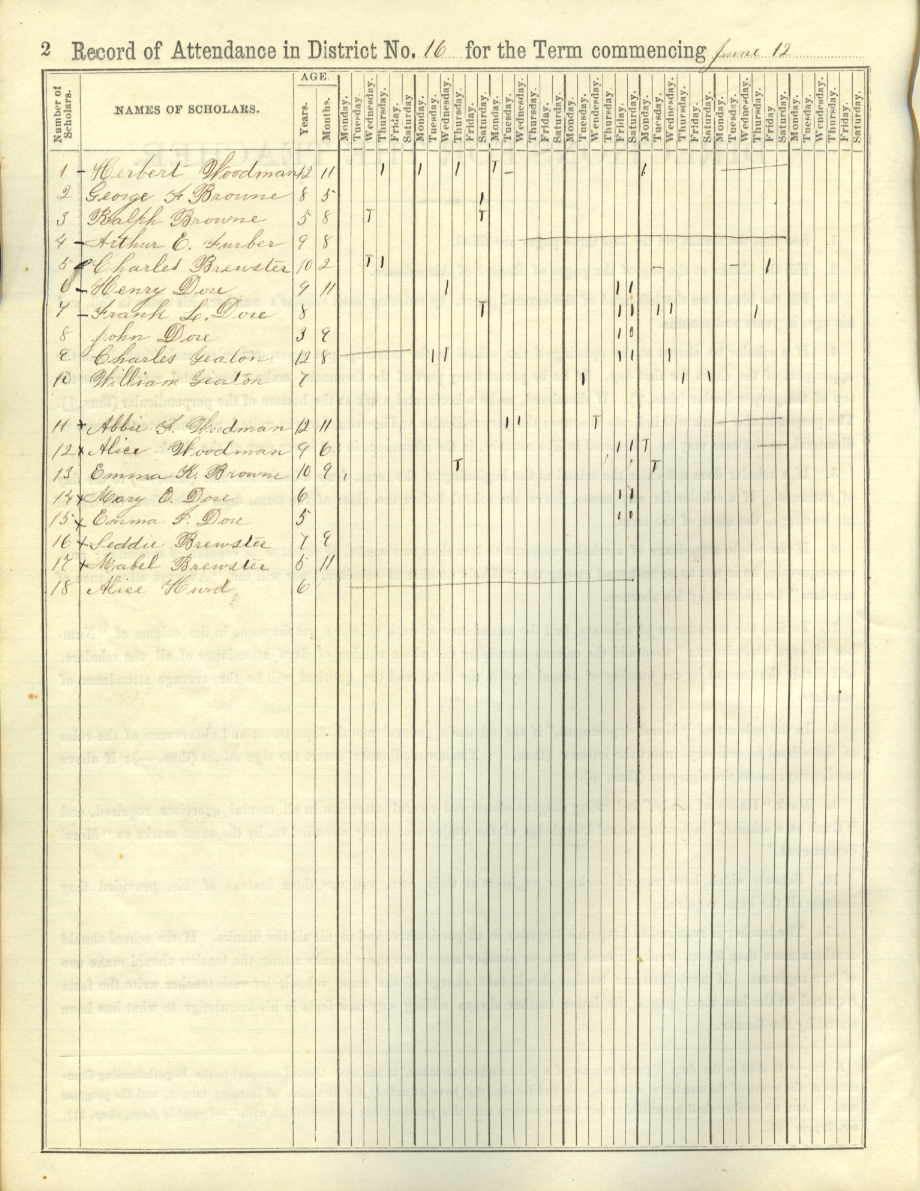 2 Record of Attendance in District No. 16 for the Term commencing June 12
Number of Scholars. NAMES OF SCHOLARS. AGE. Years. Months. Monday. Tuesday. Wednesday. Thursday. Friday. Saturday Monday. Tuesday. Wednesday. Thursday. Friday. Saturday. Monday. Tuesday. Wednesday. Thursday. Friday. Saturday. Monday. Tuesday. Wednesday. Thursday. Friday. Saturday. Monday. Tuesday. Wednesday. Thursday. Friday. Saturday. Monday. Tuesday. Wednesday. Thursday. Friday. Saturday. Monday. Tuesday. Wednesday. Thursday. Friday. Saturday.
1 - Herbert Woodman 12 11
2 George F Browne 8 5
3 Ralph Browne 5 8 T T
4 - Arthur E. Furber 9 8
5 Charles Brewster 10 2 T
6 - Henry Dore 9 11
7 - Frank L. Dore 8 T T
8 John Dore 3 9
9 Charles Yeaton 12 8
10 William Yeaton 7
11 x Abbie F. Woodman 12 11 T
12 x Alice Woodman 9 6 T
13 Emma K. Browne 10 9 T T
14 x Mary E. Dore 6
15 x Emma F. Dore 5
16 x Seddie Brewster 7 9
17 x Mabel Brewster 5 11
18 Alice Hurd 6